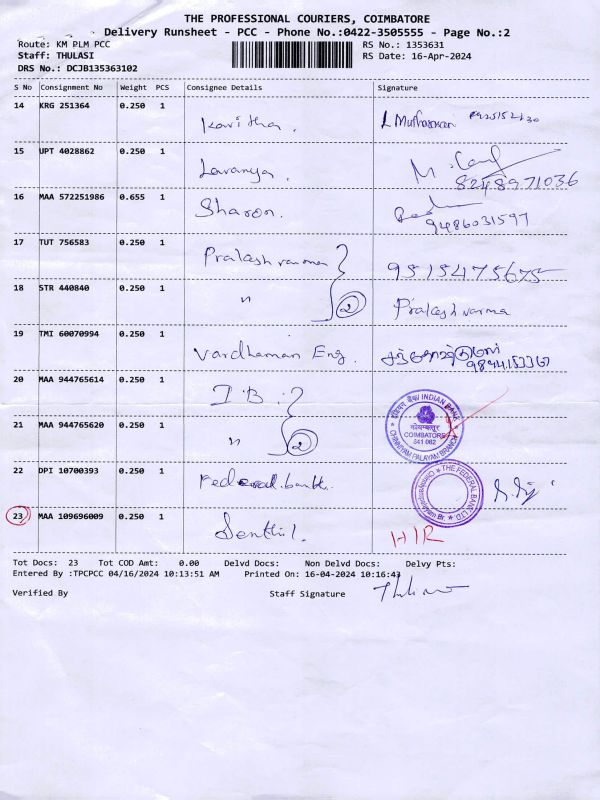 THE PROFESSIONAL COURIERS, COIMBATORE
Delivery Runsheet - PCC - Phone No.:0422-3505555 - Page No.:2
Route: KM PLM PCC
RS No.: 1353631
Staff: THULASI
RS Date: 16-Apr-2024
DRS No.: DCJB135363102
S No Consignment No Weight PCS Consignee Details Signature
14 KRG 251364 0.250 1 Kavitha.
15 UPT 4028862 0.250 1 Lavanya.
8248971036
16 MAA 572251986 0.655 1 Sharon.
9486031597
17 TUT 756583 0.250 1 Prakash varma 9515475675
18 STR 440840 0.250 1 " 2 Prakash varma
19 TMI 60070994 0.250 1 Vardhaman Eng.
20 MAA 944765614 0.250 1 I.B.
INDIAN BANK
कोयम्बत्तूर
COIMBATORE
641 062
CHINNIYAM PALAYAM BRANCH
21 MAA 944765620 0.250 1 " 2
22 DPI 10700393 0.250 1 Federal bank.
THE FEDERAL BANK LTD
23 MAA 109696009 0.250 1 Senthil. HIR
Tot Docs: 23 Tot COD Amt: 0.00 Delvd Docs: Non Delvd Docs: Delvy Pts:
Entered By :TPCPCC 04/16/2024 10:13:51 AM Printed On: 16-04-2024 10:16:43
Verified By Staff Signature